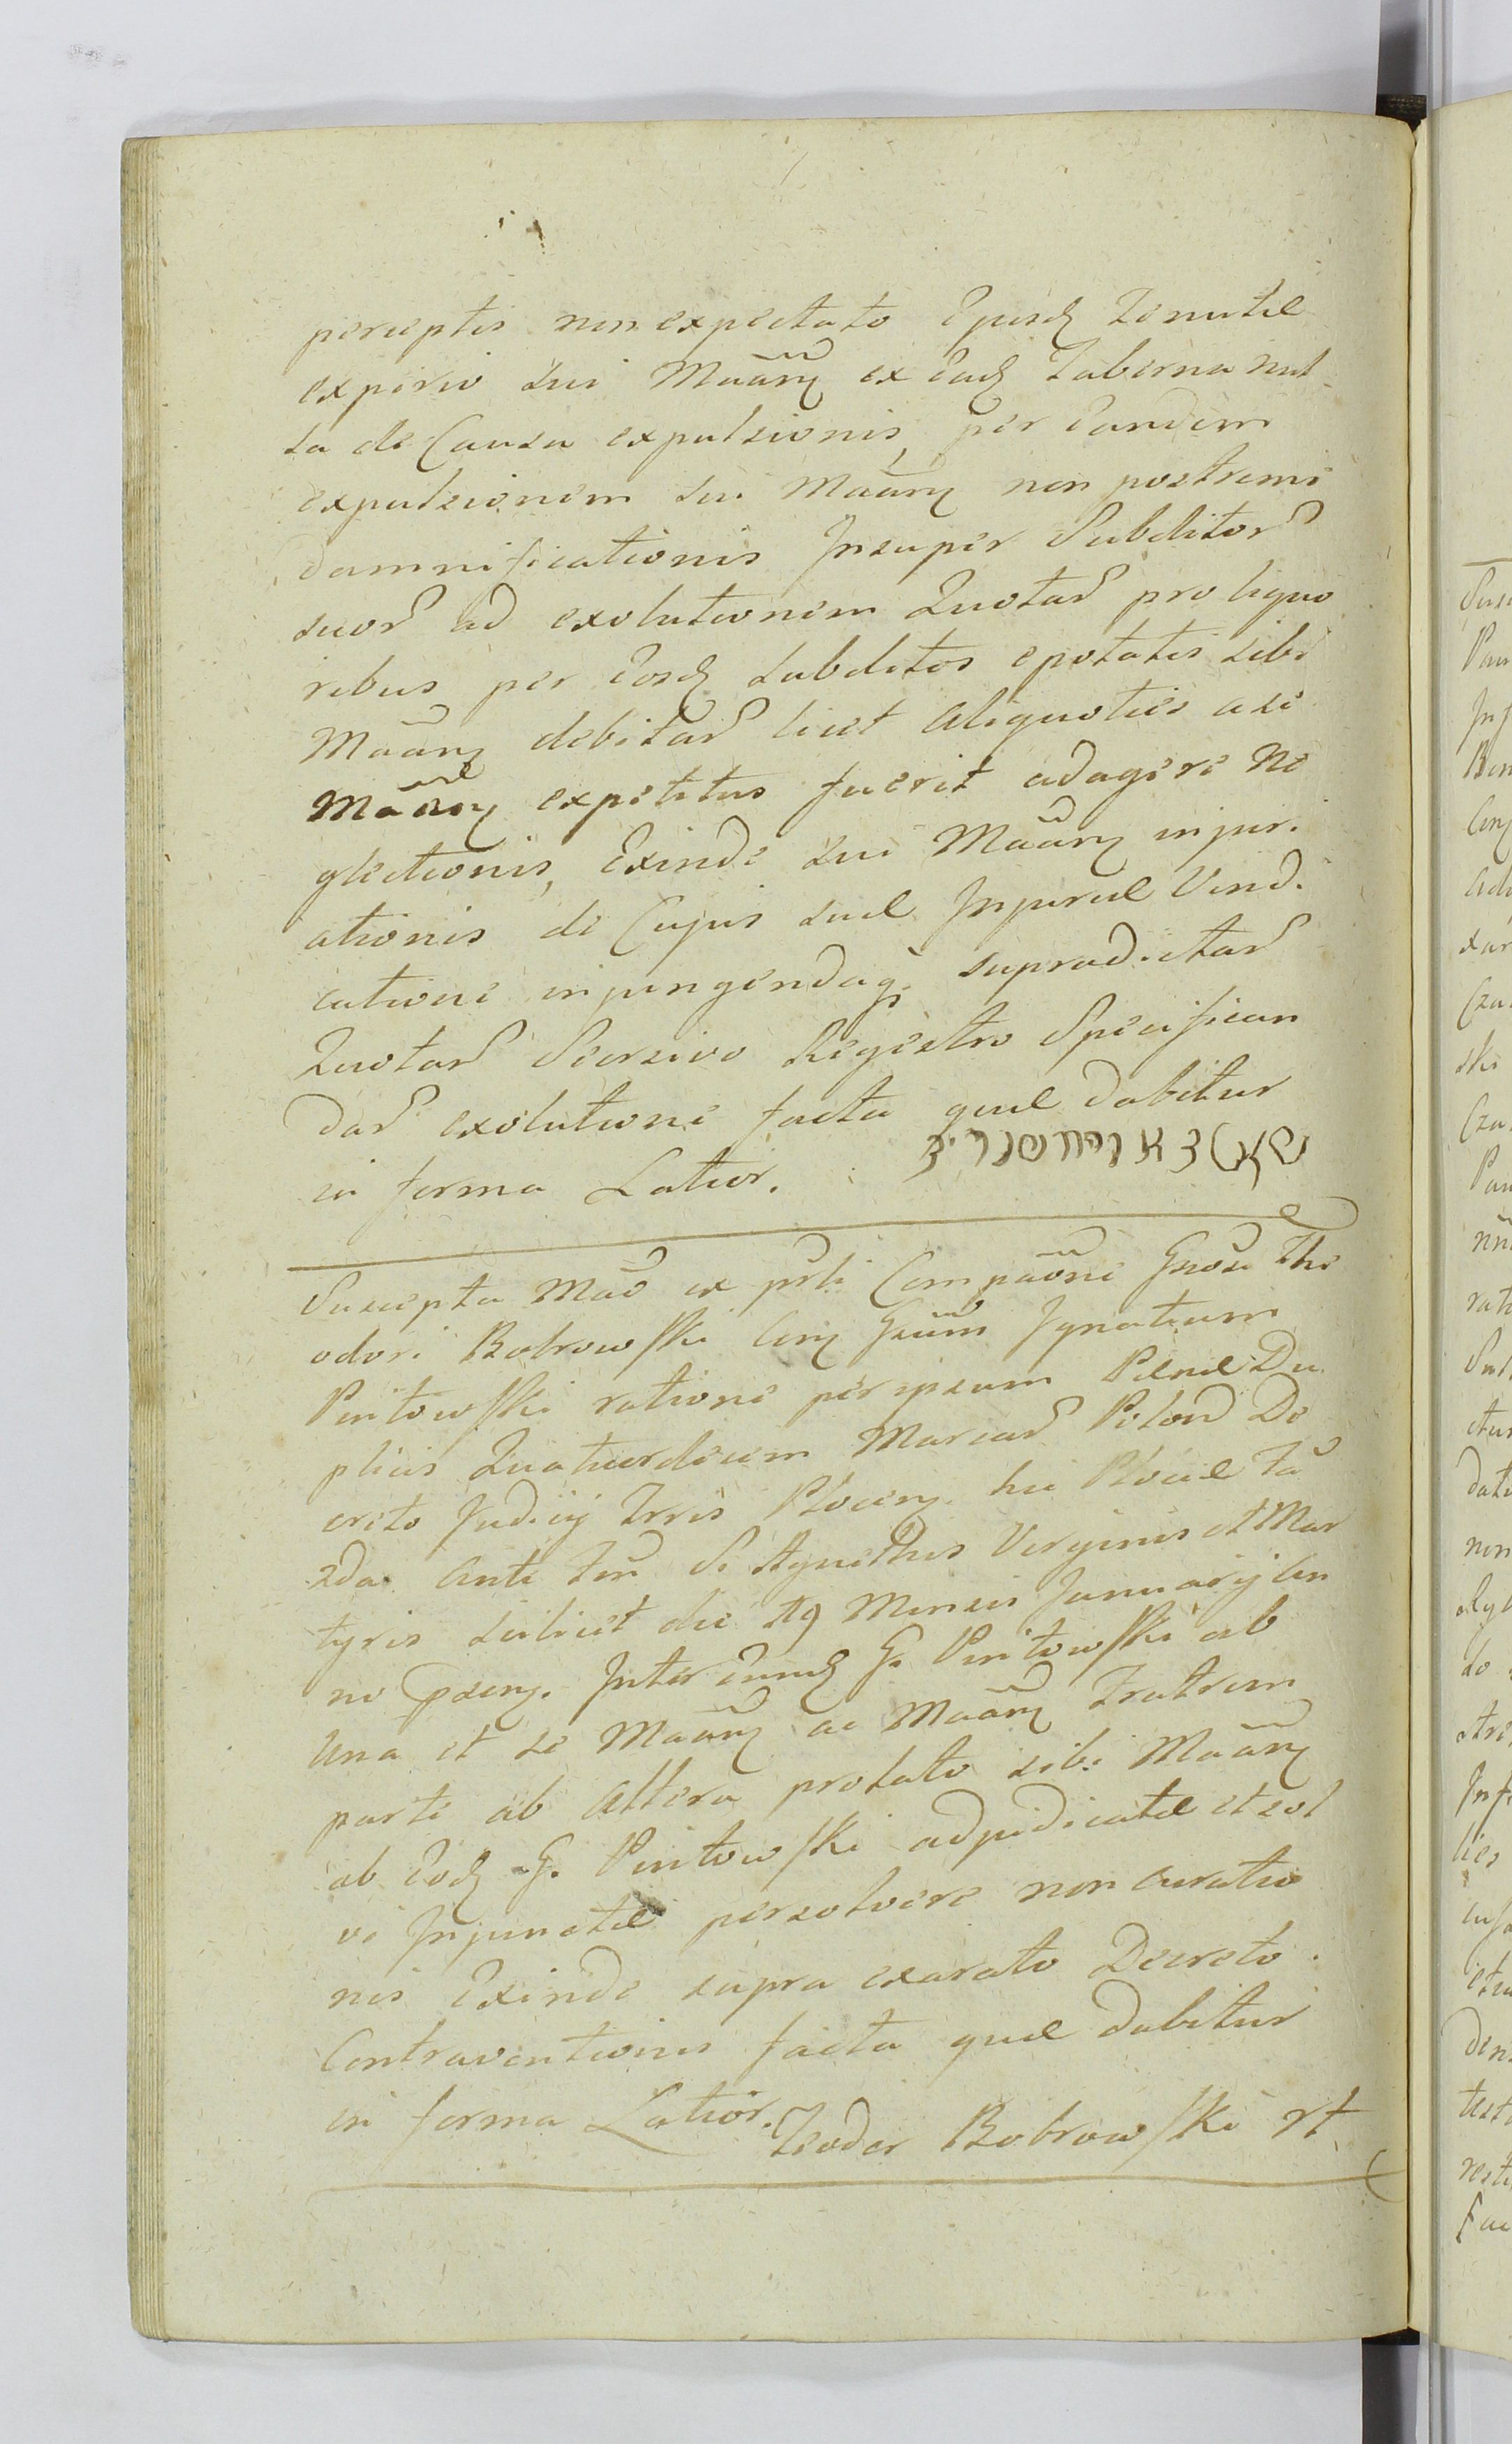 perceptis non expectato Ejusd Tenutae
expirio sui Maan ex Ead Taberna nul
la de Causa expulsionis, per Eandem
expulsionem sui Maan non postremi
damnificationis Insuper Subditor
suor ad exolutionem Quotar pro liquo
ribus per Eosd Subditos epotatis sibi
Maan debitar licet aliquoties a se
Maan expetitus fuerit adagere Ne
glectionis, Exinde sui Maan injuri
ationis de Cujus suae Injuriae Vindi
catione injungendaq supradictar
Quotar Seorsivo Regestro Specifican
dar exolutione facta quae dabitur
in forma Latior.
Suscepta Mao ex prti Compaone Gnosi The
odori Bobrowski con Gnum Ignatium
Piwtowski ratione per ipsum Poenae Du
plicis Quatuordecim Marcar Polon De
creto Judicij Trris Plocen. hic Plocae Fa
2da Ante Fem S. Agnethis Virginis et Mar
tyris scilicet die 19 Mensis Januarij An
no Praen. Inter Eund G. Piwtowski ab
Una et se Maan ac Maan Fratrem
parte ab Altera prolato sibi Maan
ab Eod G. Piwtowski adjudicatae et sol
vi Injunctae persolvere non curatio
nis Exinde supra exarato Decreto
Contraventionis facta quae dabitur
in forma Latior.
Teodor Bobrowski